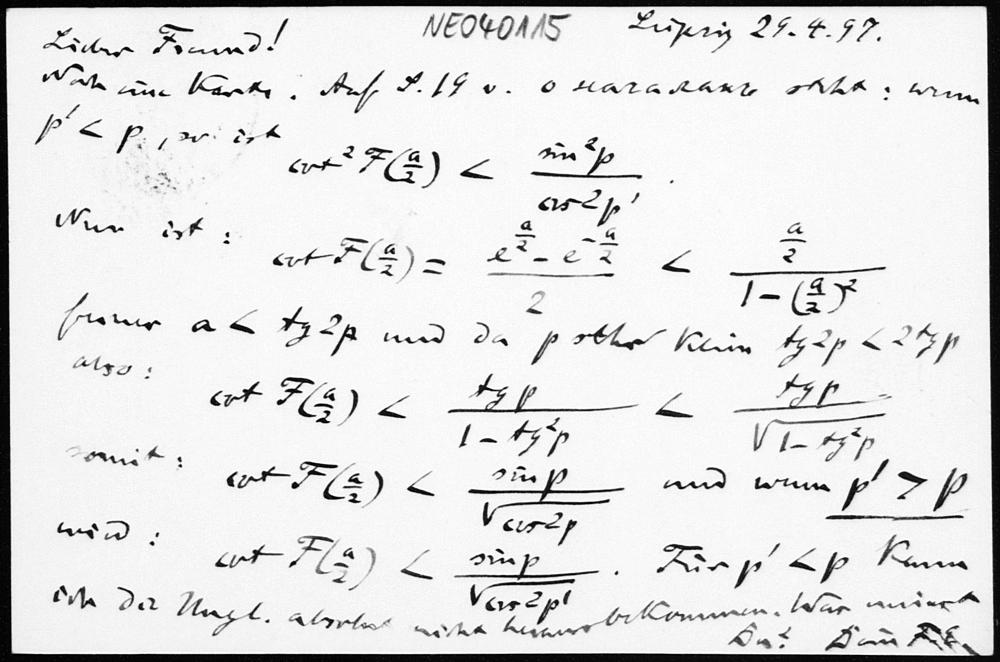 NEO40115 Leipzig 29.4.97.
Lieber Freund!
Noch eine Karte. Auf S. 19 v. о началахъ steht: wenn
p' < p, so ist
cot² F(a/2) < sin²p / cos2p' .
Nun ist:
cot F(a/2) = (e^(a/2) - e^(-a/2)) / 2 < (a/2) / (1 - (a/2)²)
ferner a < tg2p und da p sehr klein tg2p < 2tgp
also:
cot F(a/2) < tgp / (1 - tg²p) < tgp / √(1 - tg²p)
somit:
cot F(a/2) < sinp / √cos2p und wenn p' > p
wird:
cot F(a/2) < sinp / √cos2p' . Für p' < p kann
ich die Ungl. absolut nicht herausbekommen. Was meinst
Du? Dein